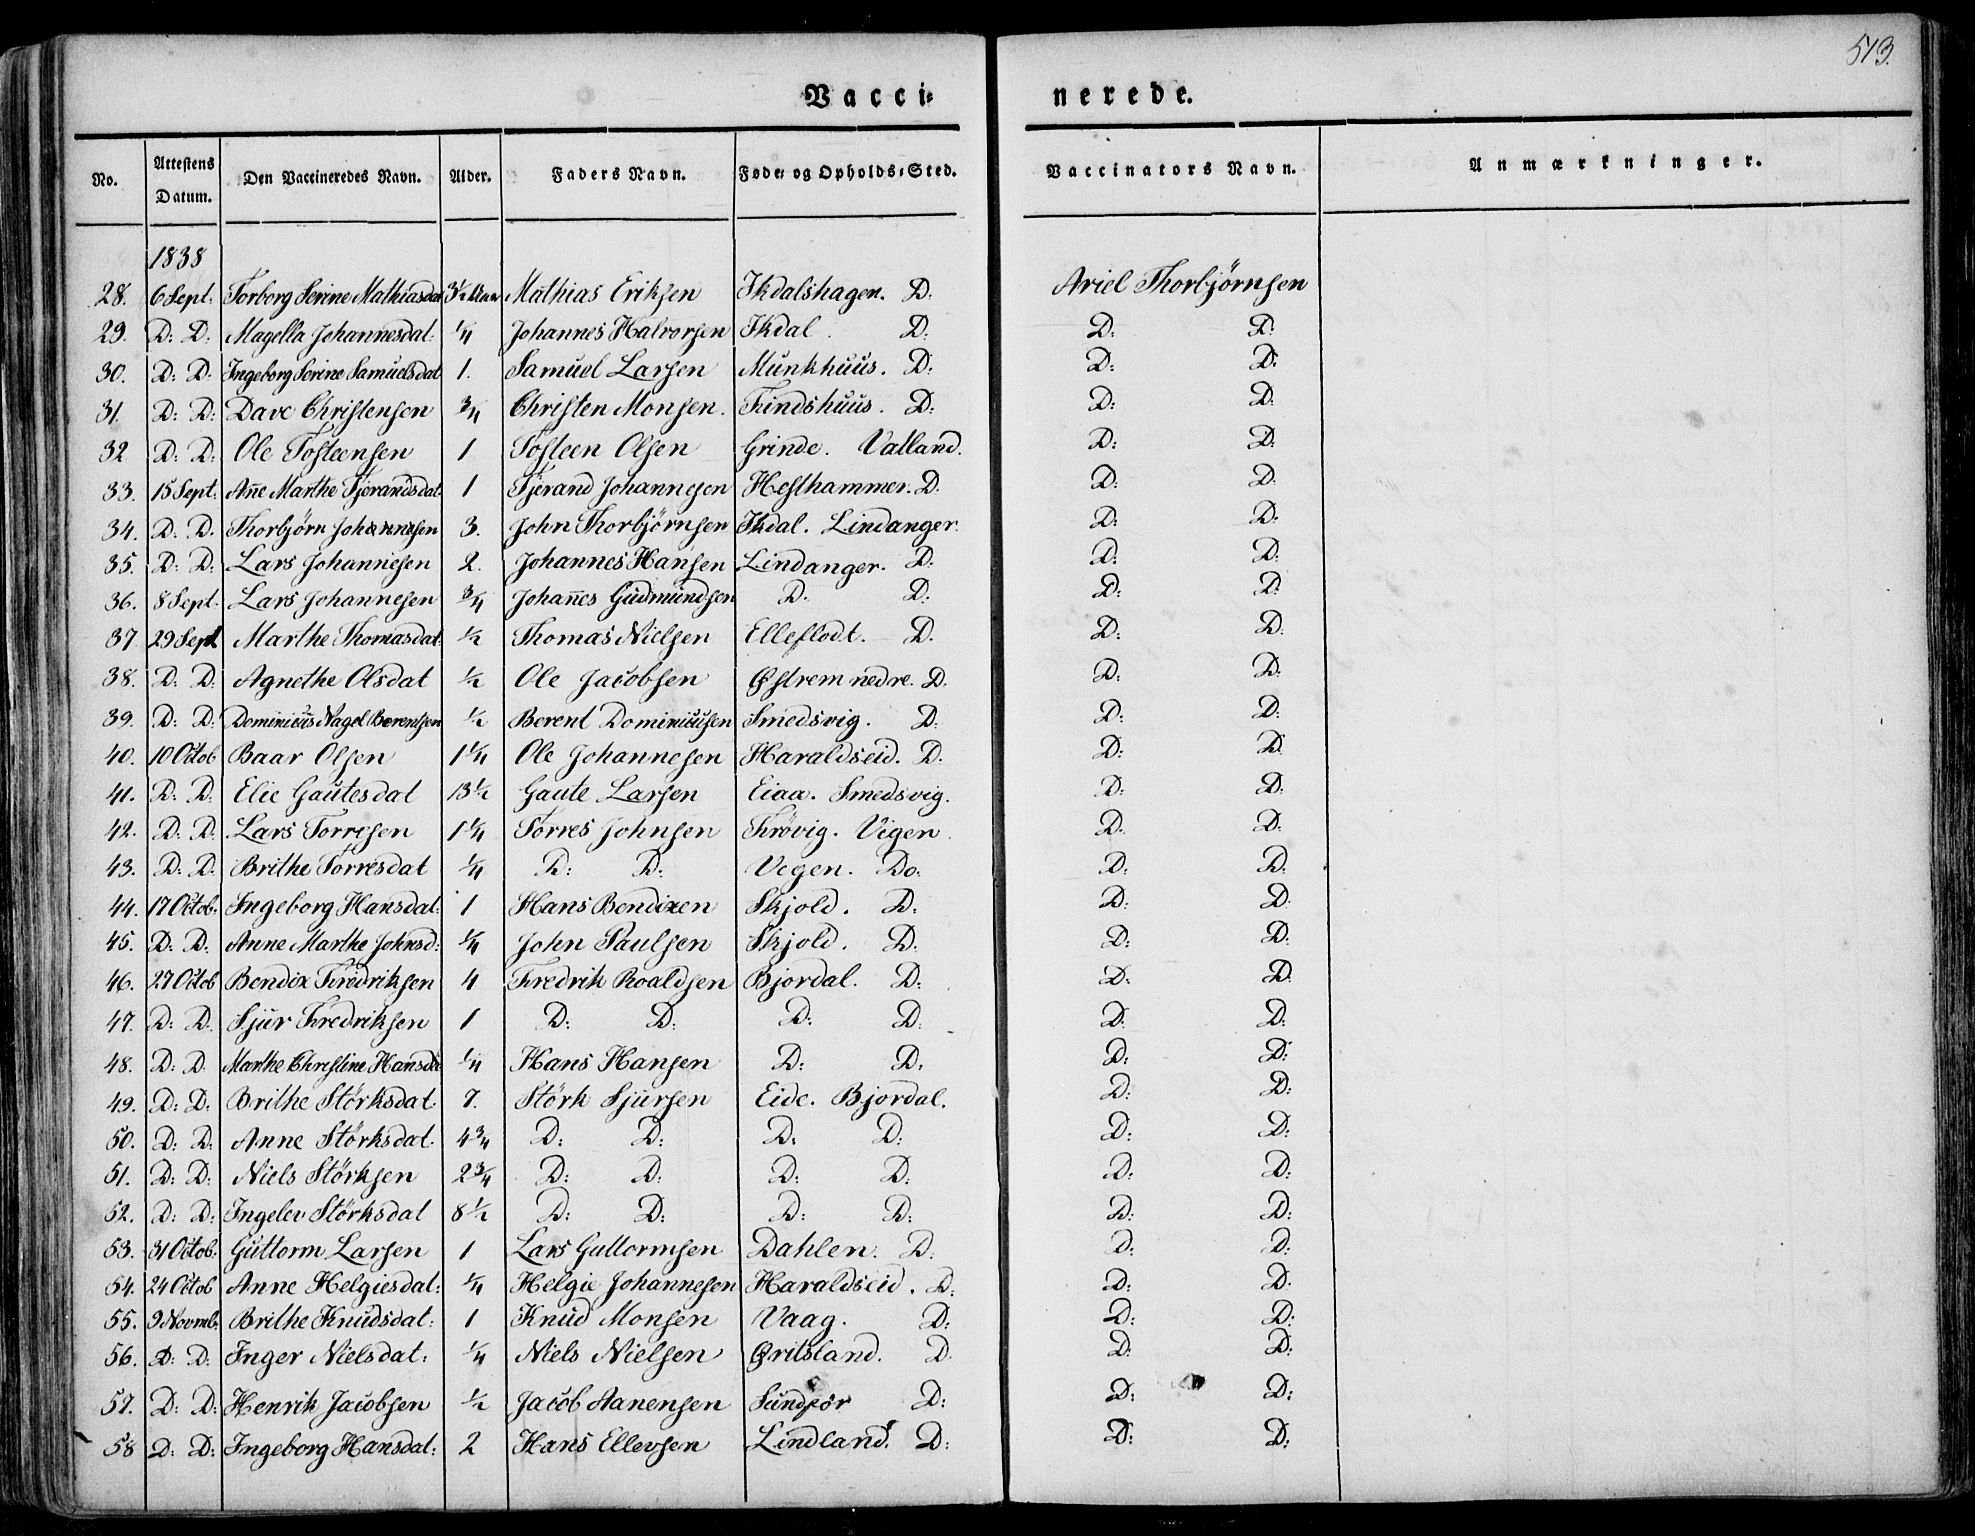 513.
Vacci= nerede.
No. Attestens Datum. Den Vaccineredes Navn. Alder. Faders Navn. Føde- og Opholds-Sted. Vaccinators Navn. Anmærkninger.
1838
28. 6 Sept: Torborg Serine Mathiasdat 3½ Mathias Eriksen Ikdalshagen. D: Ariel Thorbjörnsen
29. D: D: Magella Johannesdat: ¼ Johannes Halvorsen Ikdal. D: D: D:
30. D: D: Ingeborg Serine Samuelsdat 1. Samuel Larsen Munkhuus. D: D: D:
31. D: D: Dave Christensen ¾ Christen Monsen. Findshuus. D: D: D:
32 D: D: Ole Tosteensen 1 Tosteen Olsen Grinde. Valland. D: D:
33. 15 Sept: Añe Marthe Tjerandsdat 1 Tjerand Johannesen Hesthammer. D. D: D.
34. D: D: Thorbjörn Johannesen 3. John Thorbjörnsen Ikdal. Lindanger. D: D:
35. D: D: Lars Johannesen 2. Johannes Hansen Lindanger. D. D: D:
36. 8 Sept. Lars Johannesen ¾ Johañes Gudmundsen D. D. D: D:
37 29 Sept Marthe Thomasdat: ½ Thomas Nielsen Elleflodt. D. D: D:
38. D: D: Agnethe Olsdat ½ Ole Jacobsen Østrem nedre. D. D: D:
39. D: D: Dominicus Nagel Berentsen ½ Berent Dominicusen Smedsvig. D: D: D:
40. 10 Octob Baar Olsen 1¼ Ole Johannesen Haraldseid. D. D: D.
41. D: D: Elie Gautesdat 13½ Gaute Larsen Eiaa. Smedsvig. D: D:
42. D: D: Lars Torresen 1¼ Torres Johnsen Krövig. Vigen. D. D:
43. D: D: Brithe Torresdat ¼ D: D: Vegen. Do: D: D:
44. 17 Octob: Ingeborg Hansdat: 1 Hans Bendixen Skjold. D: D: D.
45. D: D. Anne Marthe Johnsd: ¼ John Paulsen Skjold. D. D: D:
46. 27 Octob Bendix Fredriksen 4 Fredrik Roaldsen Bjordal. D: D: D:
47. D: D. Sjur Fredriksen 1 D: D: D: D: D: D:
48. D: D. Marthe Christine Hansda ¼ Hans Hansen D: D. D: D:
49. D: D: Brithe Störksdat 7. Störk Sjursen Eide. Bjordal. D: D:
50. D: D: Anne Störksdat. 4¾ D: D: D: D: D: D:
51. D: D: Niels Störksen 2¾ D: D: D: D: D: D:
52. D: D: Ingelev Störksdat 8½ D: D: D: D: D: D:
53. 31 Octob: Guttorm Larsen 1 Lars Guttormsen Dahlen. D: D: D:
54. 24 Octob Anne Helgiesdat: ¼ Helgie Johannesen Haraldseid. D: D: D:
55. 9 Novmb: Brithe Knudsdat: 1 Knud Monsen Vaag. D: D: D:
56. D: D: Inger Nielsdat: ¼ Niels Nielsen Qvitsland. D. D: D:
57. D: D: Henrik Jacobsen ½ Jacob Aanensen Sundför D: D: D:
58 D: D: Ingeborg Hansdat: 2 Hans Ellevsen Lindland. D: D: D: